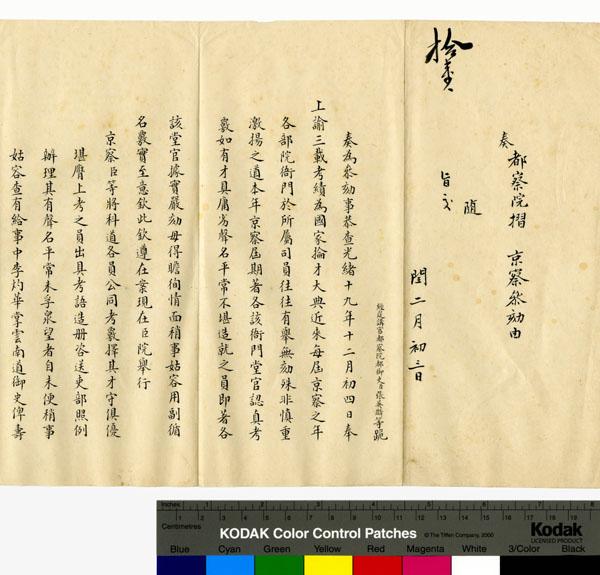 拾壹
奏
都察院摺 京察參劾由
隨
旨交
閏二月初三日
經筵講官都察院都御史臣張英麟等跪
奏為參劾事恭查光緒十九年十二月初四日奉
上諭三載考績為國家掄才大典近來每屆京察之年
各部院衙門於所屬司員往往有舉無劾殊非慎重
激揚之道本年京察屆期著各該衙門堂官認真考
覈如有才具庸劣聲名平常不堪造就之員即著各
該堂官據實嚴劾毋得瞻徇情面稍事姑容用副循
名覈實至意欽此欽遵在案現在臣院舉行
京察臣等將科道各員公同考覈擇其才守俱優
堪膺上考之員出具考語造册咨送吏部照例
辦理其有聲名平常未孚眾望者自未便稍事
姑容查有給事中李灼華掌雲南道御史俾壽
Inches
Centimetres
KODAK Color Control Patches
© The Tiffen Company, 2000
Kodak
LICENSED PRODUCT
Blue Cyan Green Yellow Red Magenta White 3/Color Black